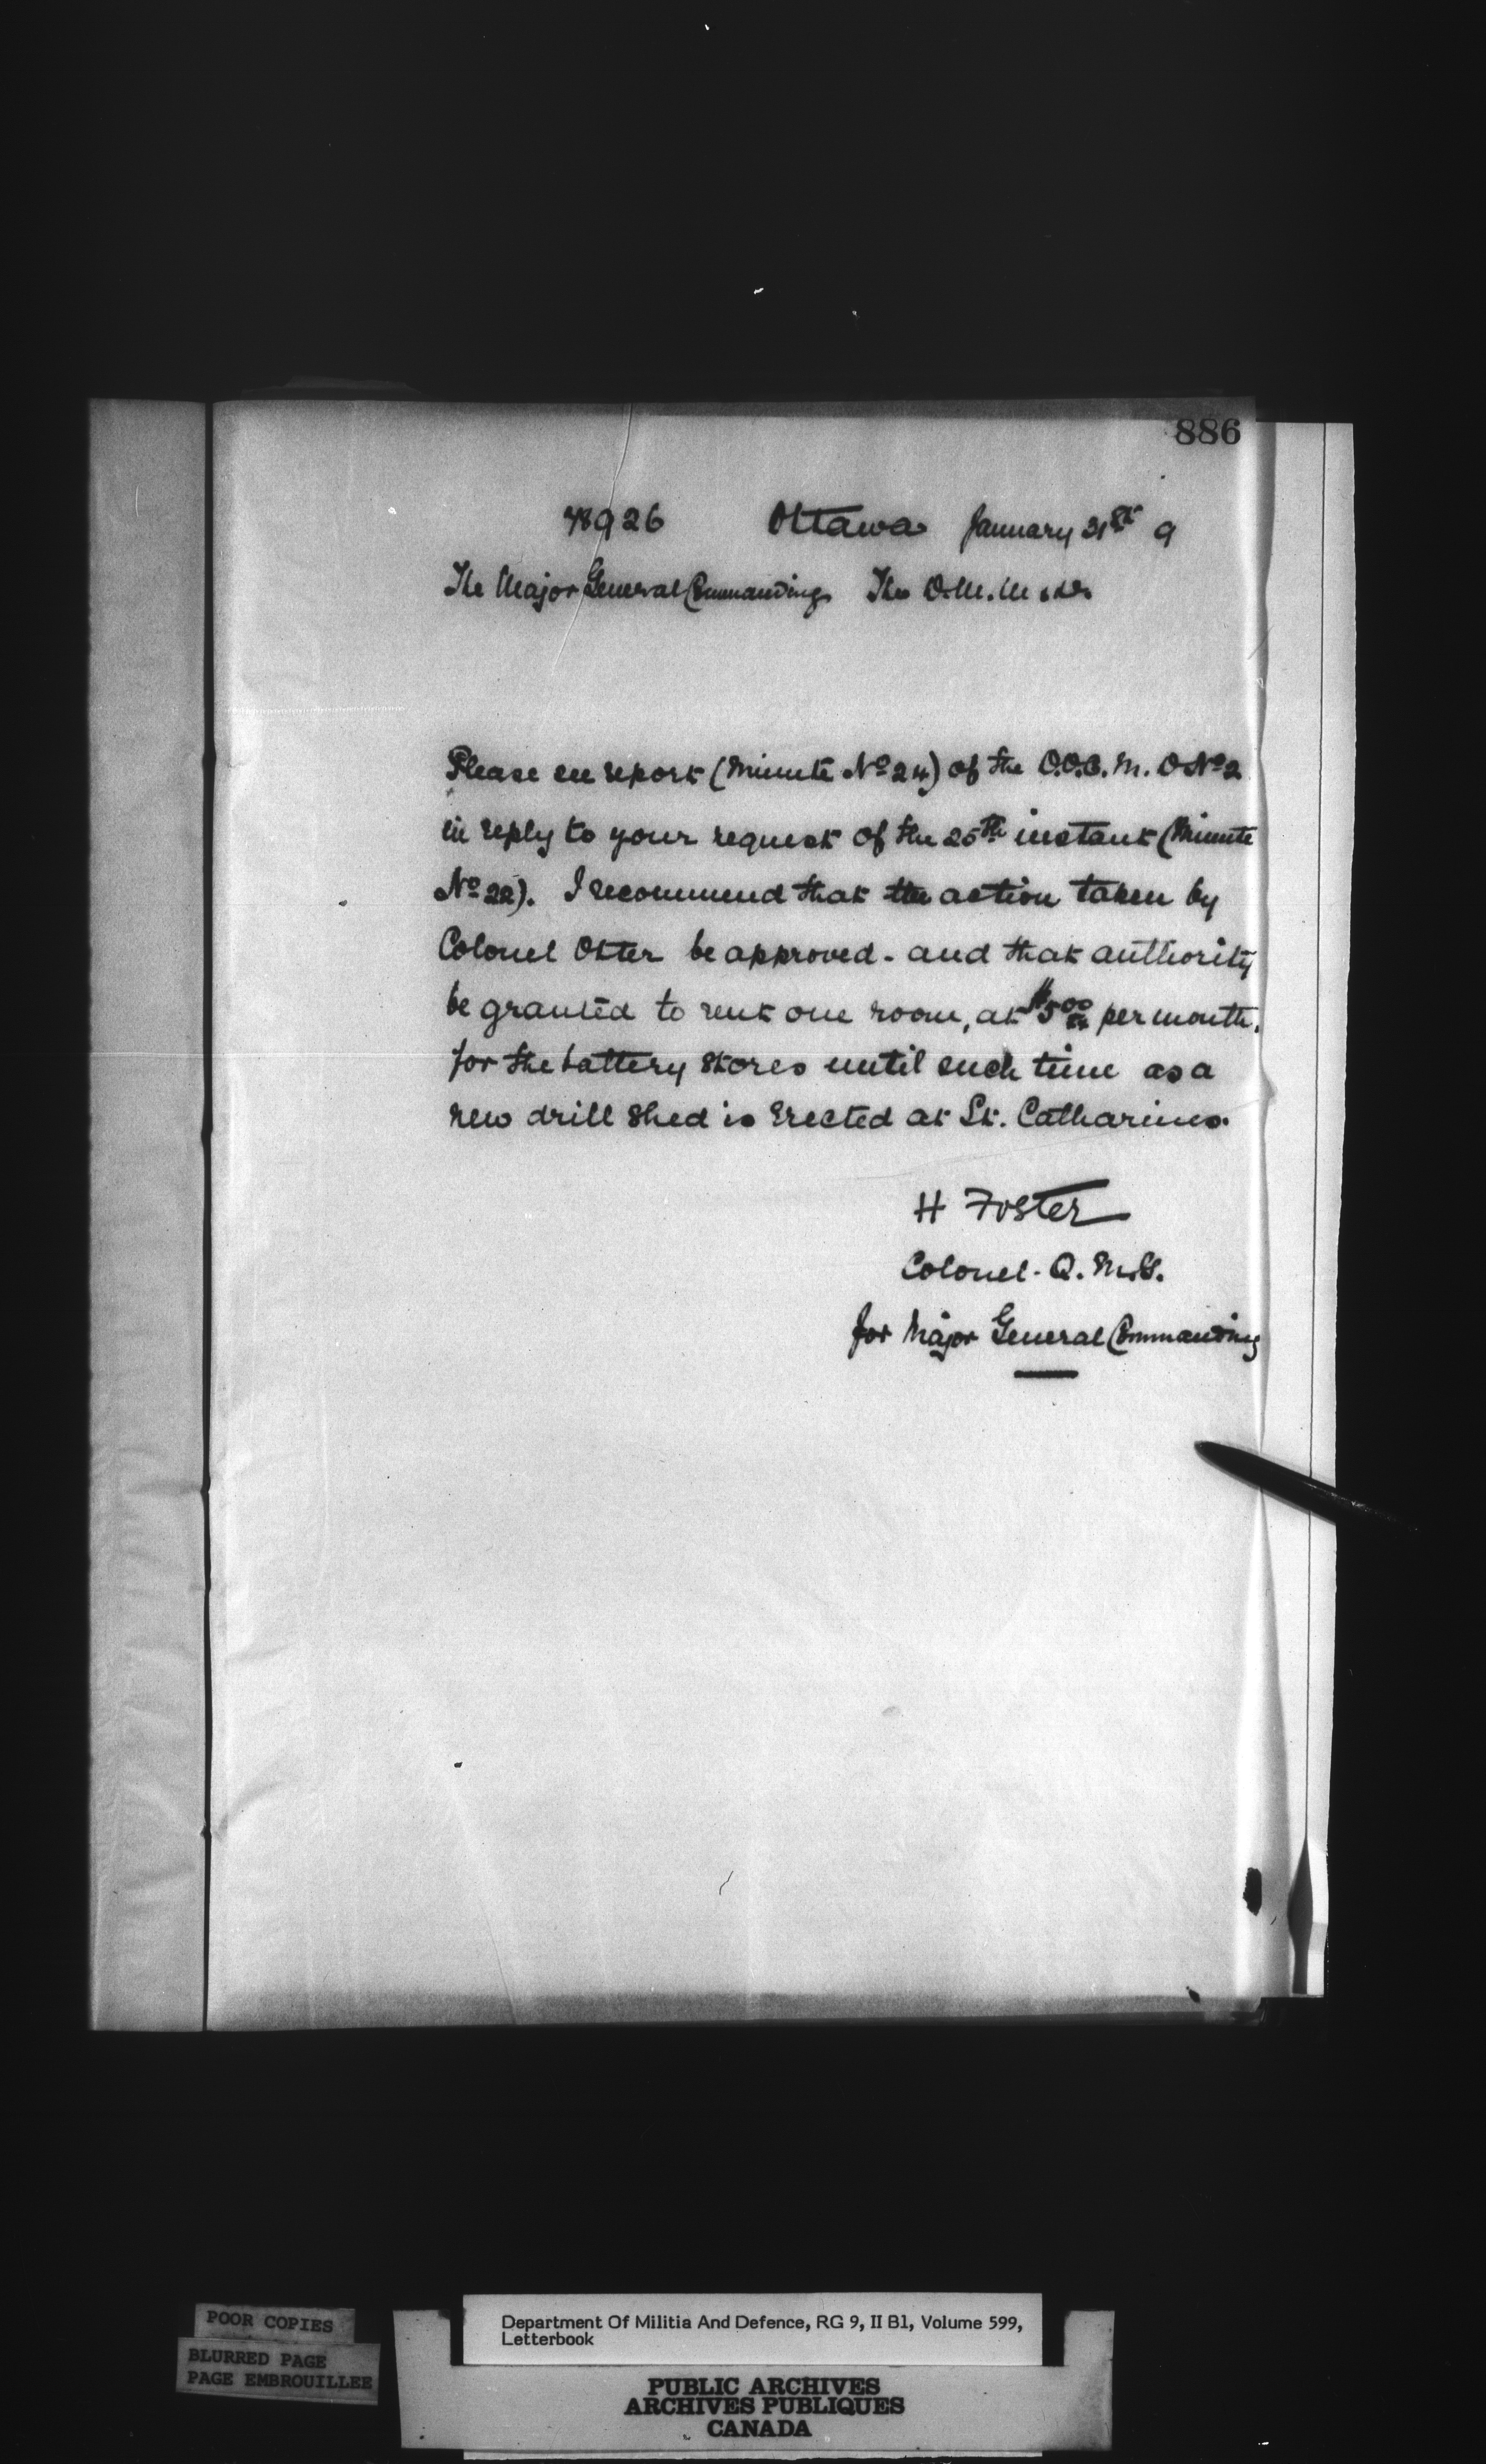 886
78926 Ottawa January 31st 9
The Major General Commanding The D.M.M &D.
Please see report (Minute No 24) of the D.O.C. M. D No 2
in reply to your request of the 25th instant (Minute
No 22). I recommend that the action taken by
Colonel Otter be approved - and that authority
be granted to rent one room, at $5 00 per month,
for the battery stores until such time as a
new drill shed is erected at St. Catharines.
H Foster
Colonel - Q. M. G.
for Major General Commanding
POOR COPIES
BLURRED PAGE
PAGE EMBROUILLEE
Department Of Militia And Defence, RG 9, II B1, Volume 599,
Letterbook
PUBLIC ARCHIVES
ARCHIVES PUBLIQUES
CANADA